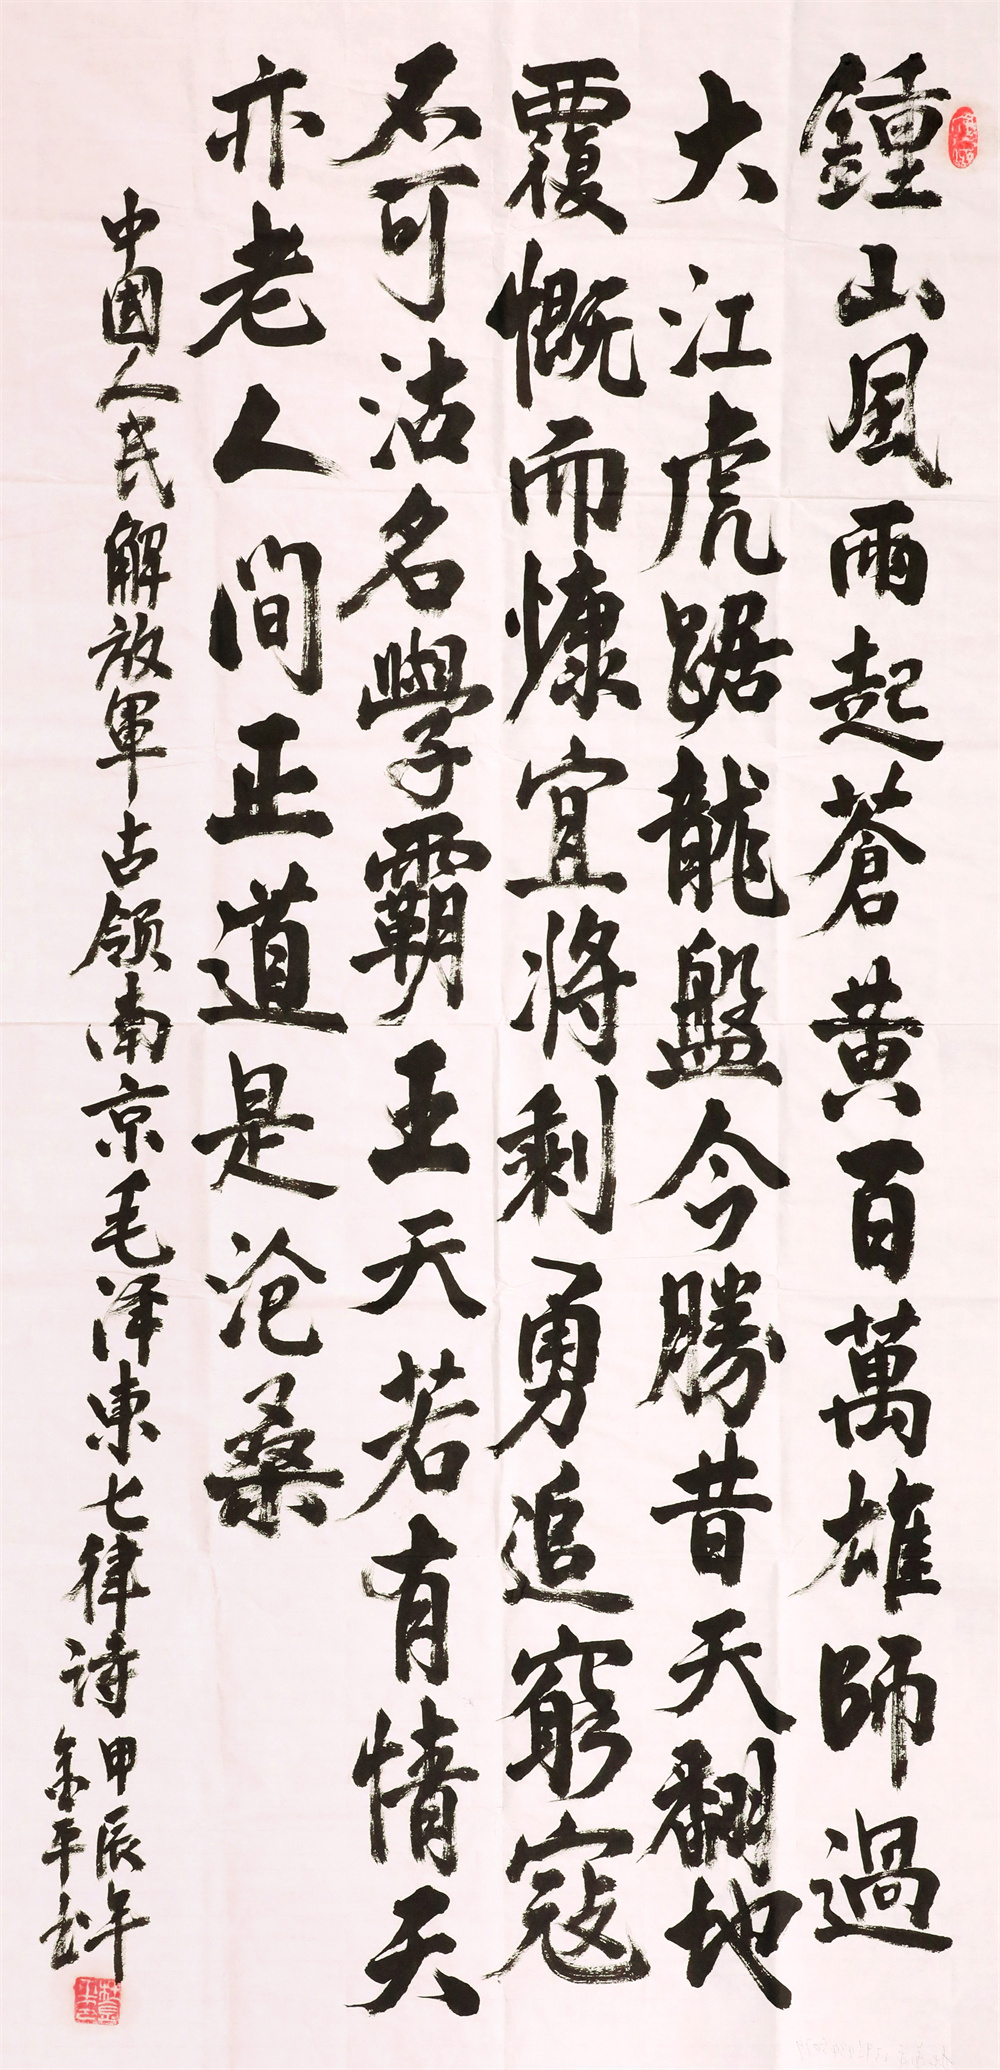 鍾山風雨起蒼黄百萬雄師過
大江虎踞龍盤今勝昔天翻地
覆慨而慷宜将剩勇追窮寇
不可沽名學霸王天若有情天
亦老人间正道是沧桑
中國人民解放軍占领南京毛泽東七律诗甲辰年
金平书